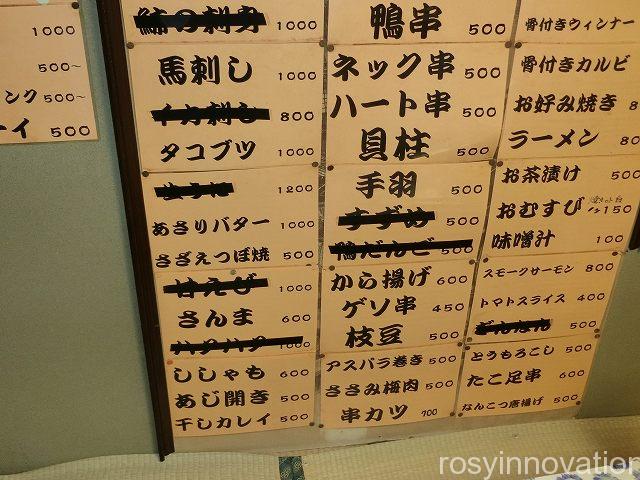 1000
500〜
ンク 500〜
ーイ 500
馬刺し 1000
800
タコブツ 1000
1200
あさりバター 1000
さざえつぼ焼 500
甘えび 1000
さんま 600
1000
ししゃも 600
あじ開き 500
干しカレイ 500
鴨串 500
ネック串 500
ハート串 500
貝柱 500
手羽 500
すずめ 500
鴨だんご 500
から揚げ 600
ゲソ串 450
枝豆 500
アスパラ巻き 500
ささみ梅肉 500
串カツ 700
骨付きウィンナー
骨付きカルビ
お好み焼き 8
ラーメン 80
お茶漬け 500
おむすび 150
味噌汁 100
スモークサーモン 800
トマトスライス 400
ぎんなん 500
とうもろこし 500
たこ足串 600
なんこつ唐揚げ 500
rosyinnovation